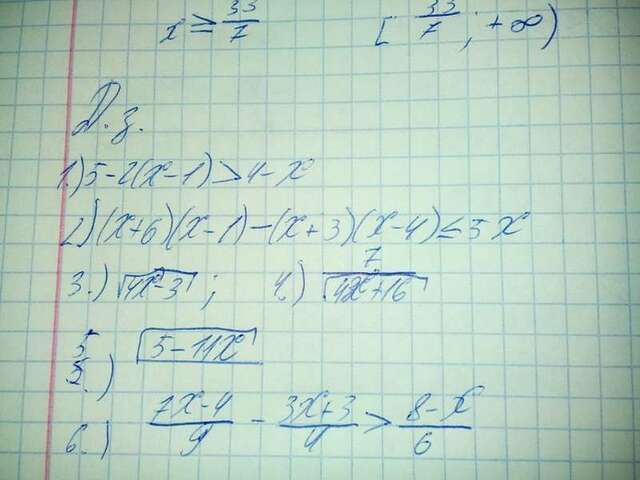 x ≥ 33/7 [33/7; +∞)
Д.з.
1.) 5-2(x-1)>4-x
2) (x+6)(x-1)-(x+3)(x-4)≤5x
3.) √(4x-3); 4.) 7/√(42x+16)
5.) √(5-11x)
6.) (7x-4)/9 - (3x+3)/4 > (8-x)/6